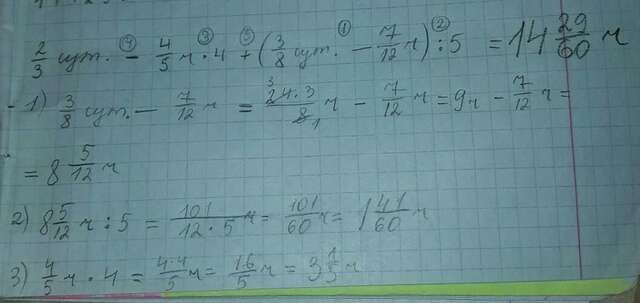 2/3 сут. - 4/5 ч · 4 + (3/8 сут. - 7/12 ч) : 5 = 14 29/60 ч
④ ③ ⑤ ① ②
- 1) 3/8 сут. - 7/12 ч = 24·3/8 ч - 7/12 ч = 9ч - 7/12 ч =
= 8 5/12 ч
2) 8 5/12 ч : 5 = 101/12·5 ч = 101/60 ч = 1 41/60 ч
3) 4/5 ч · 4 = 4·4/5 ч = 16/5 ч = 3 1/5 ч